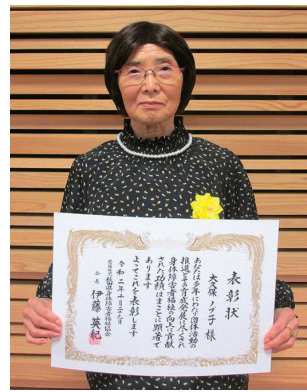 表彰状
大久保 ノブ子 様
あなたは多年にわたり団体活動の
推進とその育成発展に尽くされ
身体障害者福祉の向上に貢献
された功績はまことに顕著で
あります
よってこれを表彰します
令和二年十月二十九日
秋田県身体障害者福祉協会
会長 伊藤 英紀